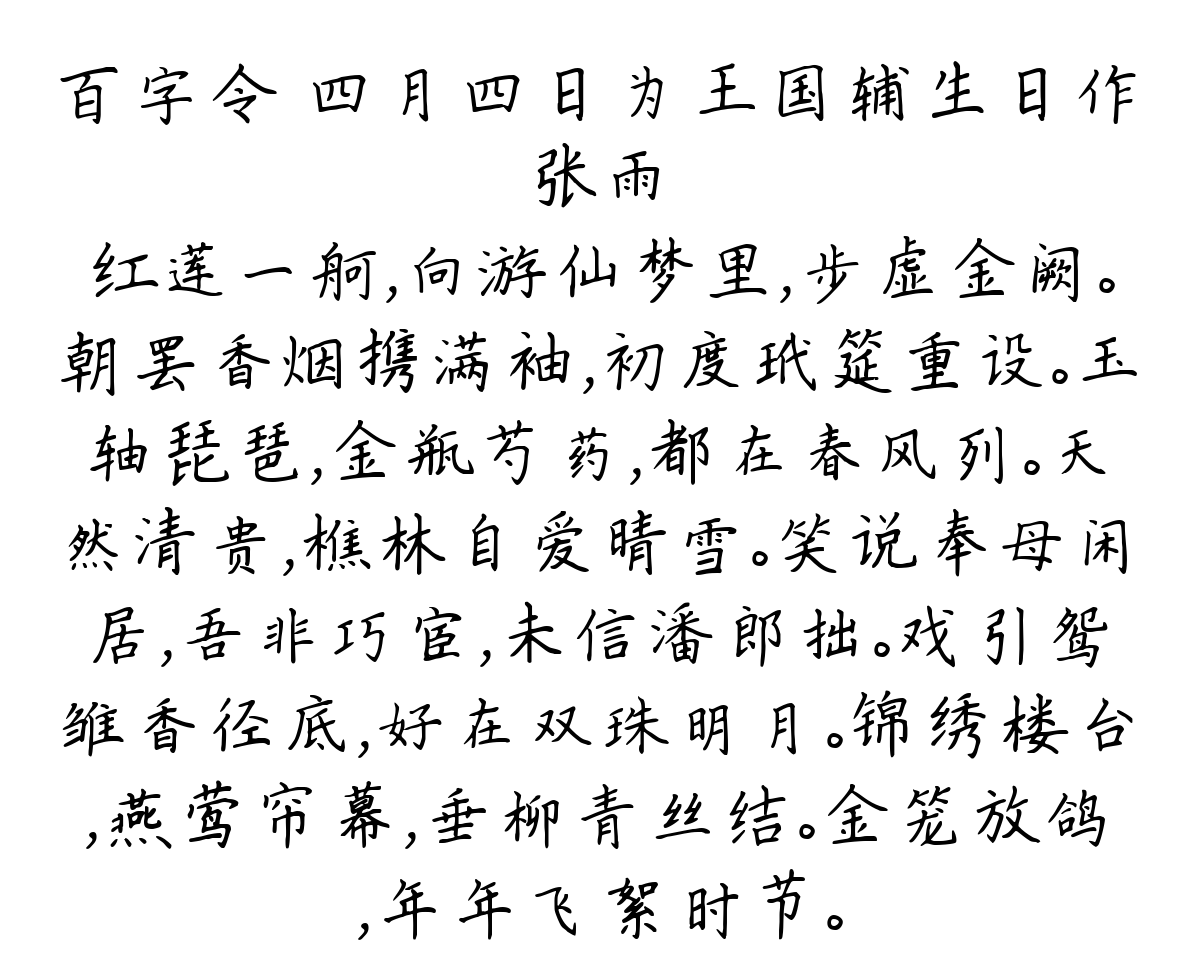 百字令 四月四日为王国辅生日作
张雨
红莲一舸,向游仙梦里,步虚金阙。
朝罢香烟携满袖,初度玳筵重设。玉
轴琵琶,金瓶芍药,都在春风列。天
然清贵,樵林自爱晴雪。笑说奉母闲
居,吾非巧宦,未信潘郎拙。戏引鸳
雏香径底,好在双珠明月。锦绣楼台
,燕莺帘幕,垂柳青丝结。金笼放鸽
,年年飞絮时节。